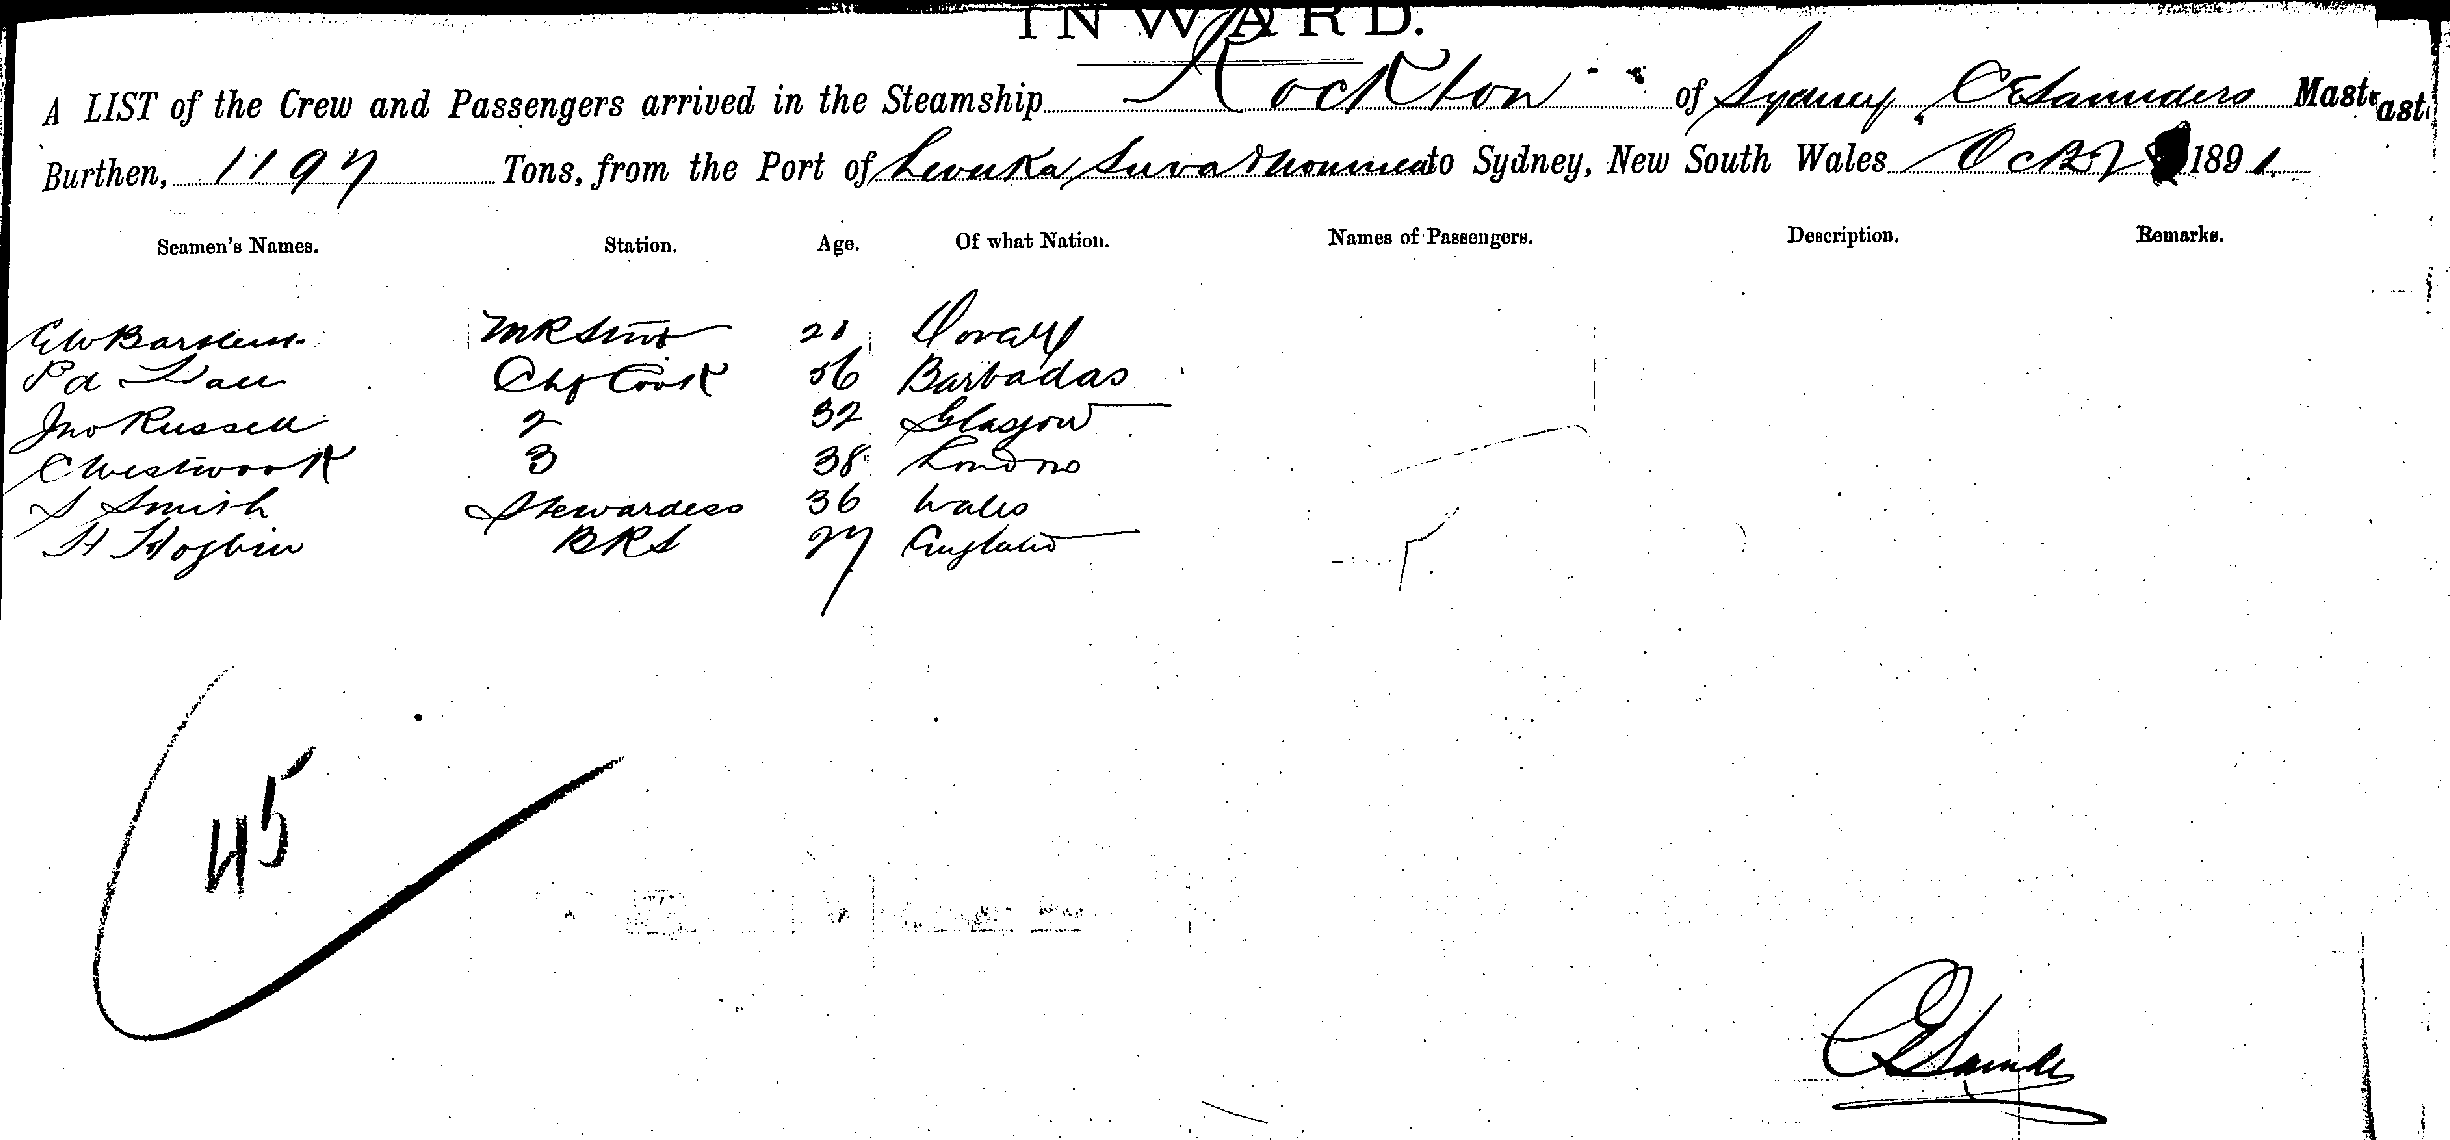 INWARD.
A LIST of the Crew and Passengers arrived in the Steamship Rockton of Sydney CESaunders Mast
Burthen, 1197 Tons, from the Port of Levuka Suva & Noumea to Sydney, New South Wales Octbr 1891.
Seamen's Names. Station. Age. Of what Nation. Names of Passengers. Description. Remarks.
MR 21
Pd Chf Cook 56 Barbadas
Jno Russell 2 32 Glasgow
C Westwook 3 38 London
S Smith Stewardess 36 Wales
H Hogbin BRS 27 England
45
CESaunders